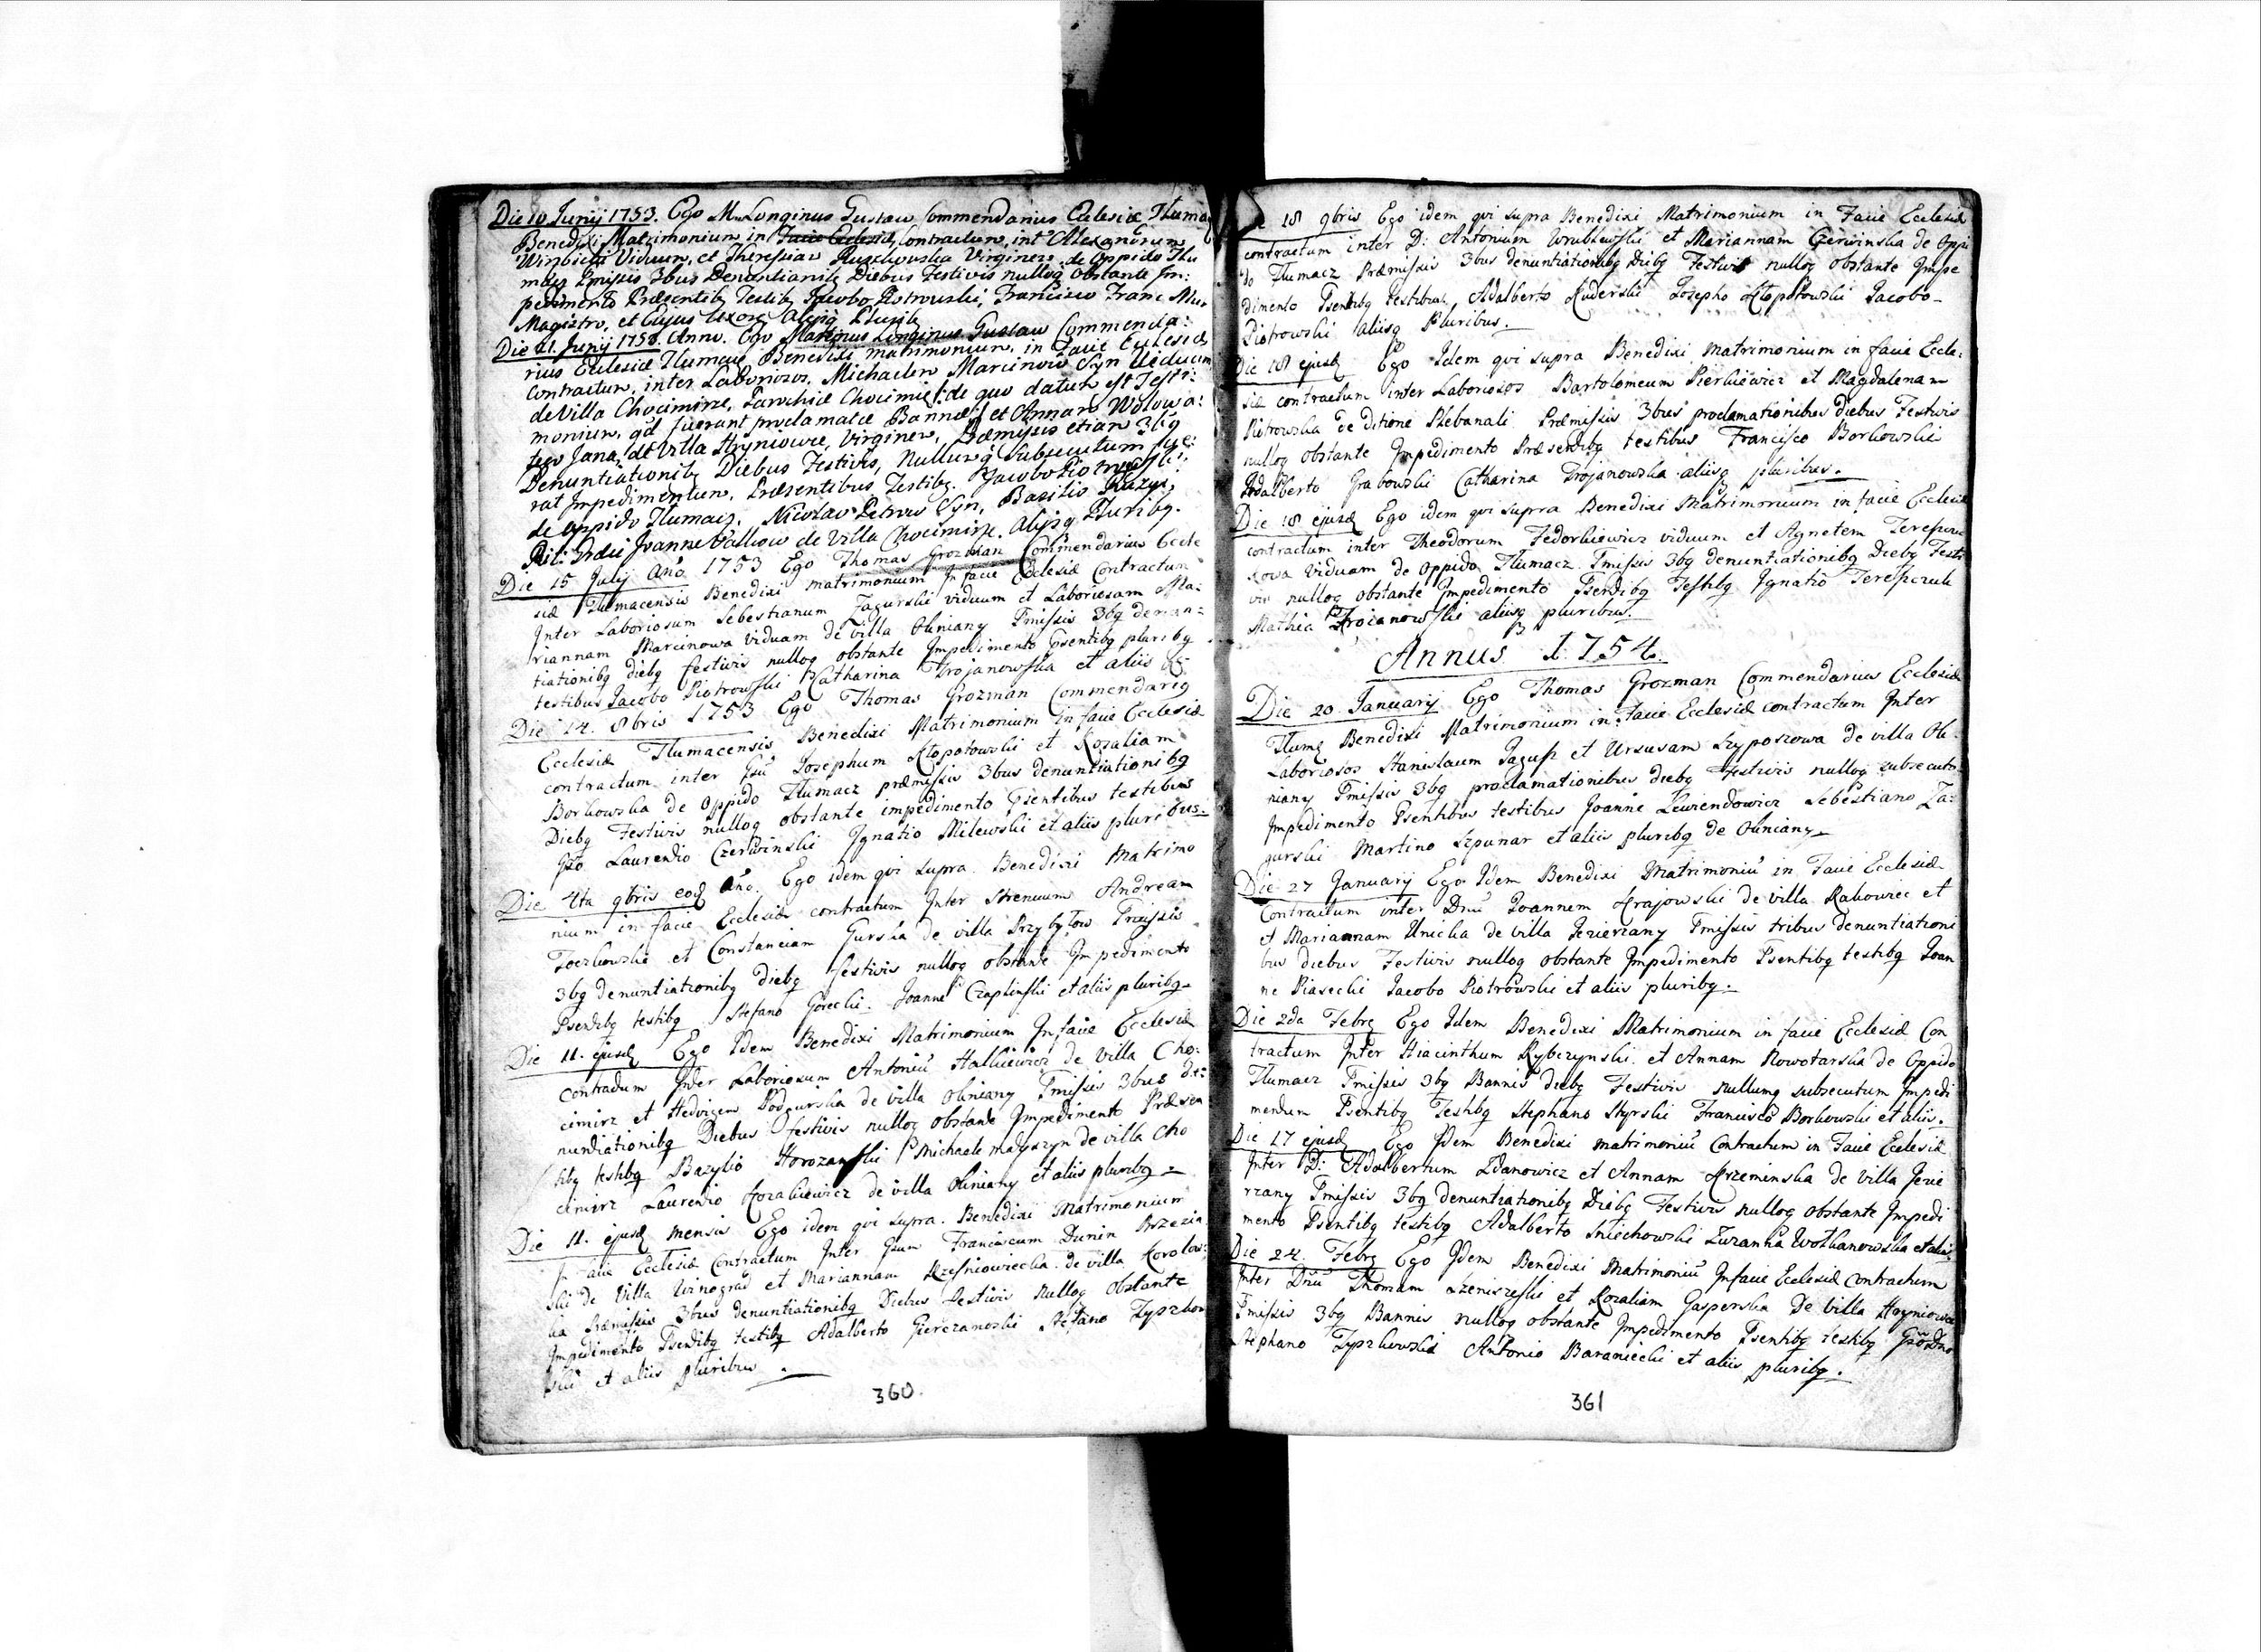 Die 10 Junij 1753. Ego M. Longinus Gustaw Commendarius Eclesiæ Tlumac
Benedixi Matrimonium in Facie Eclesiæ Contractum, int Alexandrum
Viduum, et Theressiam Virginem de Oppido Tlu
macz Pmissis 3bus Denuntianib Diebus Festivis nulloq obstante Im:
pedimento Præsentib Testib Jacobo Piotrowski, Francisco Franc
Magistro, et Ejus Uxore Alijsq Plurib
Die 21. Junij 1753. Anno. Ego Martinus Longinus Gustaw Commenda:
rius Eclesiæ Tlumacz Benedixi matrimonium, in Facie Eclesiæ
contractum, inter Laboriosos, Michaelem Marcinow Syn Viduum
de Villa Chocimirz, Parochiæ Chocimir de quo datum est Testi:
monium, qd fuerunt proclamatæ Bannæ et Annam Wolowa:
tego Jana, de Villa Hryniowce, Virginem, Præmissis etiam 3bq
Denuntiationib Diebus Festivis, Nullumq Subsecutum fue:
rat Impedimentum, Præsentibus Testibq. Jacobo Piotrowski,
de Oppido Tlumacz. Nicolao Petrow Syn, Basilio
Rit: Græci Joanne Palkow de Villa Chocimirz. Alijsq Pluribq.
Die 15 Julij Ano 1753 Ego Thomas Grozman Commendarius Eccle
siæ Tlumacensis Benedixi matrimonium In facie Ecclesiæ Contractum
Inter Laboriosum Sebestianum Zagurski viduum et Laboriosam Ma:
riannam Marcinowa Viduam de villa Oliniany Pmissis 3bq denun:
tiationibq diebq festivis nulloq obstante Impedimento Psentibq pluribq
testibus Jacobo Piotrowski Catharina Trojanowska et aliis &
Die 14. 8bris 1753 Ego Thomas Grozman Commendariq
Ecclesiæ Tlumacensis Benedixi Matrimonium in facie Ecclesiæ
contractum inter Gsu Josephum Klopotowski et Rozaliam
Borkowska de Oppido Tlumacz præmissis 3bus denuntiationibq
Diebq Festivis nulloq obstante impedimento Psentibus testibus
Gso Laurentio Czerwinski Ignatio Milewski et aliis pluribus
Die 4ta 9bris eod Ano. Ego idem qvi supra Benedixi Matrimo
nium in facie Ecclesiæ contractum Inter Strenuum Andream
Toczkowski et Constanciam Gurska de villa Przybylow Pmissis
3bq denuntiationibq diebq festivis nulloq obstante Impedimento
Psentibq testibq Stefano Gorecki. Joanne Czaplinski et aliis pluribq
Die 11. ejusd Ego Idem Benedixi Matrimonium In facie Ecclesiæ
Contractum Inter Laboriosum Antoniu Halkiewicz de villa Cho:
cimirz et Hedvigem Podgurska de villa Oliniany Pmissis 3bus de:
nuntiationibq Diebus festivis nulloq obstante Impedimento Præsen
tibq testibq Bazylio Horozanski Michaele de villa Cho
cimirz Laurentio Kozakiewicz de villa Oliniany et aliis pluribq
Die 11. ejusd mensis Ego idem qvi supra. Benedixi Matrimonium
In facie Ecclesiæ Contractum Inter Gsum Franciscum Dunin Brzezin
ski de Villa Winograd et Mariannam Rzesniowiecka de villa Korolow:
ka Præmissis 3bus denuntiationibq Diebus festivis nulloq obstante
Impedimento Psentibq testibq Adalberto Gierczanoski Stefano Zyszkow
ski et aliis pluribus
360.
Die 18 9bris Ego idem qvi supra Benedixi Matrimonium in Facie Ecclesiæ
contractum inter D: Antonium Wrublewski et Mariannam Czerwinska de Oppi
do Tlumacz Præmissis 3bus denuntiationibq Diebq Festivis nulloq obstante Impe
dimento Psentibq testibus, Adalberto Kuderski Josepho Klopotowski Jacobo
Piotrowski aliisq Pluribus.
Die 18 ejusd Ego Idem qvi supra Benedixi Matrimonium in facie Eccle:
siæ contractum inter Laboriosos Bartolomeum Pierkiewicz et Magdalenam
Piotrowska de ditione Plebanali Præmissis 3bus proclamationibus diebus Festivis
nulloq obstante Impedimento Præsentibq testibus Francisco Borkowski
Adalberto Grabowski Catharina Trojanowska aliisq pluribus.
Die 18 ejusd Ego idem qvi supra Benedixi Matrimonium in facie Ecclesiæ
contractum inter Theodorum Fedorkiewicz viduum et Agnetem Tereszczu
kowa Viduam de Oppido Tlumacz Pmissis 3bq denuntiationibq Diebq Festi
vis nulloq obstante Impedimento Psentibq Testibq Ignatio Tereszczuk
Mathia Trojanowski aliisq pluribus.
Annus 1754.
Die 20 January Ego Thomas Grozman Commendarius Ecclesiæ
Tlumq Benedixi Matrimonium in Facie Ecclesiæ contractum Inter
Laboriosos Stanislaum Jagusz et Ursusam Szyposzowa de villa Oli
niany Pmissis 3bq proclamationibus diebq festivis nulloq subsecuto
Impedimento Psentibus testibus Joanne Lewiendowicz Sebestiano Za:
gurski Martino Szpunar et aliis pluribq de Oliniany
Die 27 January Ego Idem Benedixi Matrimoniu in Facie Ecclesiæ
Contractum inter Dnu Joannem Krajowski de villa Rakowiec et
et Mariannam Unicka de villa Jezierzany Pmissis tribus denuntiationi
bus diebus Festivis nulloq obstante Impedimento Psentibq testibq Joan
ne Piasecki Jacobo Piotrowski et aliis pluribq.
Die 2da Febrq Ego Idem Benedixi Matrimonium in facie Ecclesiæ Con
tractum Inter Hiacinthum Rybczynski et Annam Nowotarska de Oppido
Tlumacz Pmissis 3bq Bannis diebq Festivis nullumq subsecutum Impedi
mentum Psentibq Testibq Stephano Styrski Francisco Borkowski et aliis.
Die 17 ejusd Ego Idem Benedixi matrimoniu Contractum in Facie Ecclesiæ
Inter D: Adalbertum Zdanowicz et Annam Krzeminska de Villa Jezie
rzany Pmissis 3bq denuntiationibq Diebq Festivis nulloq obstante Impedi
mento Psentibq testibq Adalberto Sniechowski Zuzanna Wolkanowska et aliis
Die 24. Febrq Ego Idem Benedixi Matrimoniu In facie Ecclesiæ contractum
Inter Dnu Thomam et Rozaliam Gasperska De Villa Hryniowce
Pmissis 3bq Bannis nulloq obstante Impedimento Psentibq testibq Gso Dno
Stephano Zyszkowski Antonio Baraniecki et aliis pluribq.
361